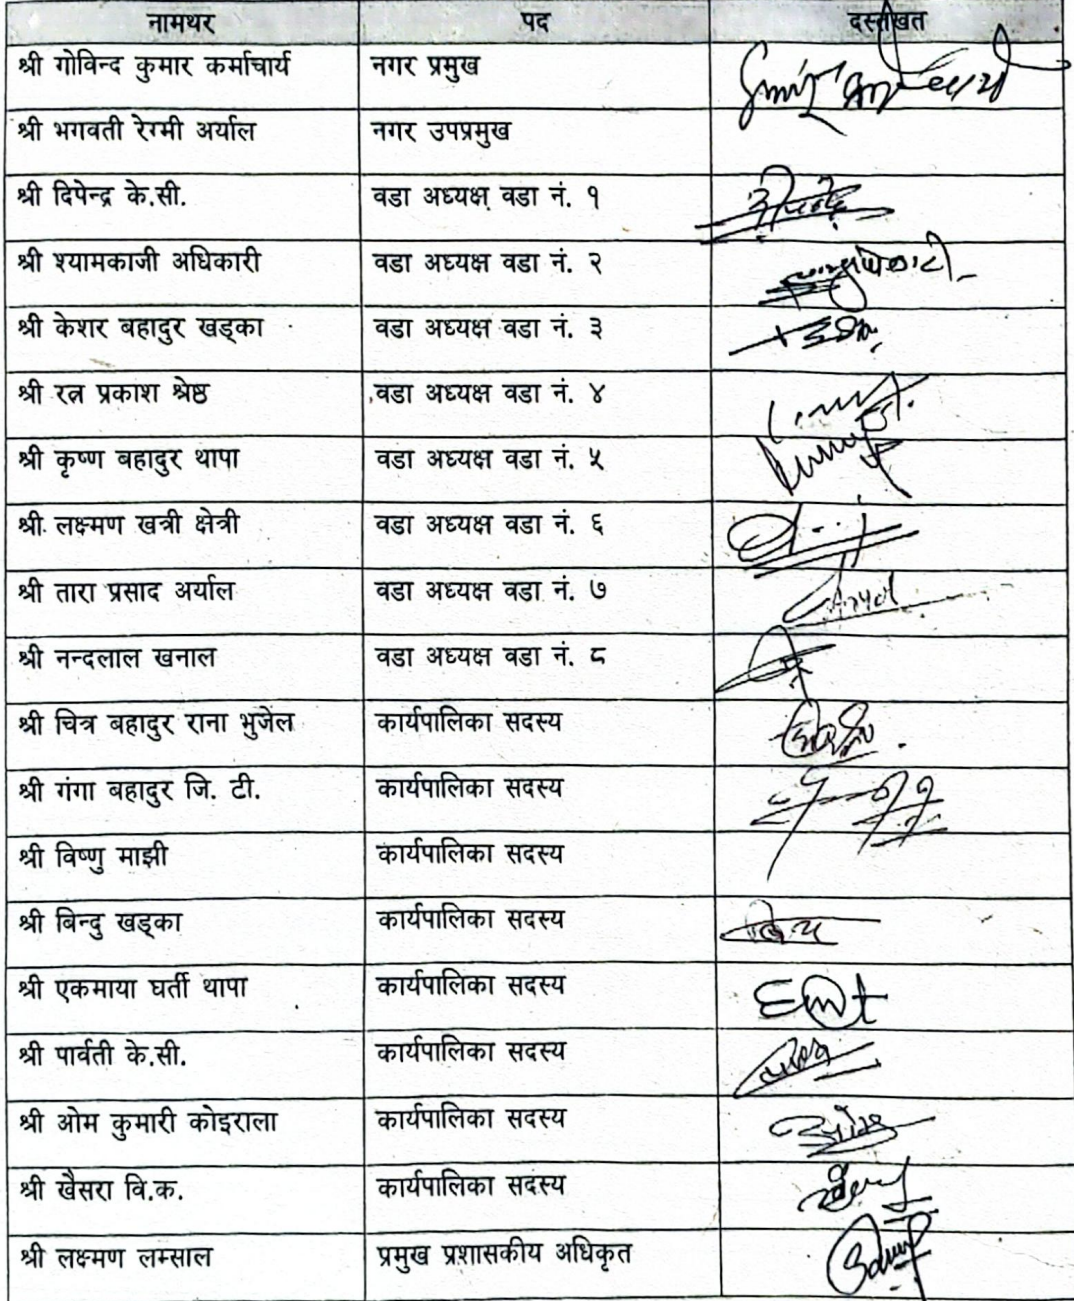 नामथर पद दस्तखत
श्री गोविन्द कुमार कर्माचार्य नगर प्रमुख
श्री भगवती रेग्मी अर्याल नगर उपप्रमुख
श्री दिपेन्द्र के.सी. वडा अध्यक्ष वडा नं. १
श्री श्यामकाजी अधिकारी वडा अध्यक्ष वडा नं. २
श्री केशर बहादुर खड्का वडा अध्यक्ष वडा नं. ३
श्री रत्न प्रकाश श्रेष्ठ वडा अध्यक्ष वडा नं. ४
श्री कृष्ण बहादुर थापा वडा अध्यक्ष वडा नं. ५
श्री लक्ष्मण खत्री क्षेत्री वडा अध्यक्ष वडा नं. ६
श्री तारा प्रसाद अर्याल वडा अध्यक्ष वडा नं. ७
श्री नन्दलाल खनाल वडा अध्यक्ष वडा नं. ८
श्री चित्र बहादुर राना भुजेल कार्यपालिका सदस्य
श्री गंगा बहादुर जि. टी. कार्यपालिका सदस्य
श्री विष्णु माझी कार्यपालिका सदस्य
श्री बिन्दु खड्का कार्यपालिका सदस्य
श्री एकमाया घर्ती थापा कार्यपालिका सदस्य
श्री पार्वती के.सी. कार्यपालिका सदस्य
श्री ओम कुमारी कोइराला कार्यपालिका सदस्य
श्री खैसरा वि.क. कार्यपालिका सदस्य
श्री लक्ष्मण लम्साल प्रमुख प्रशासकीय अधिकृत